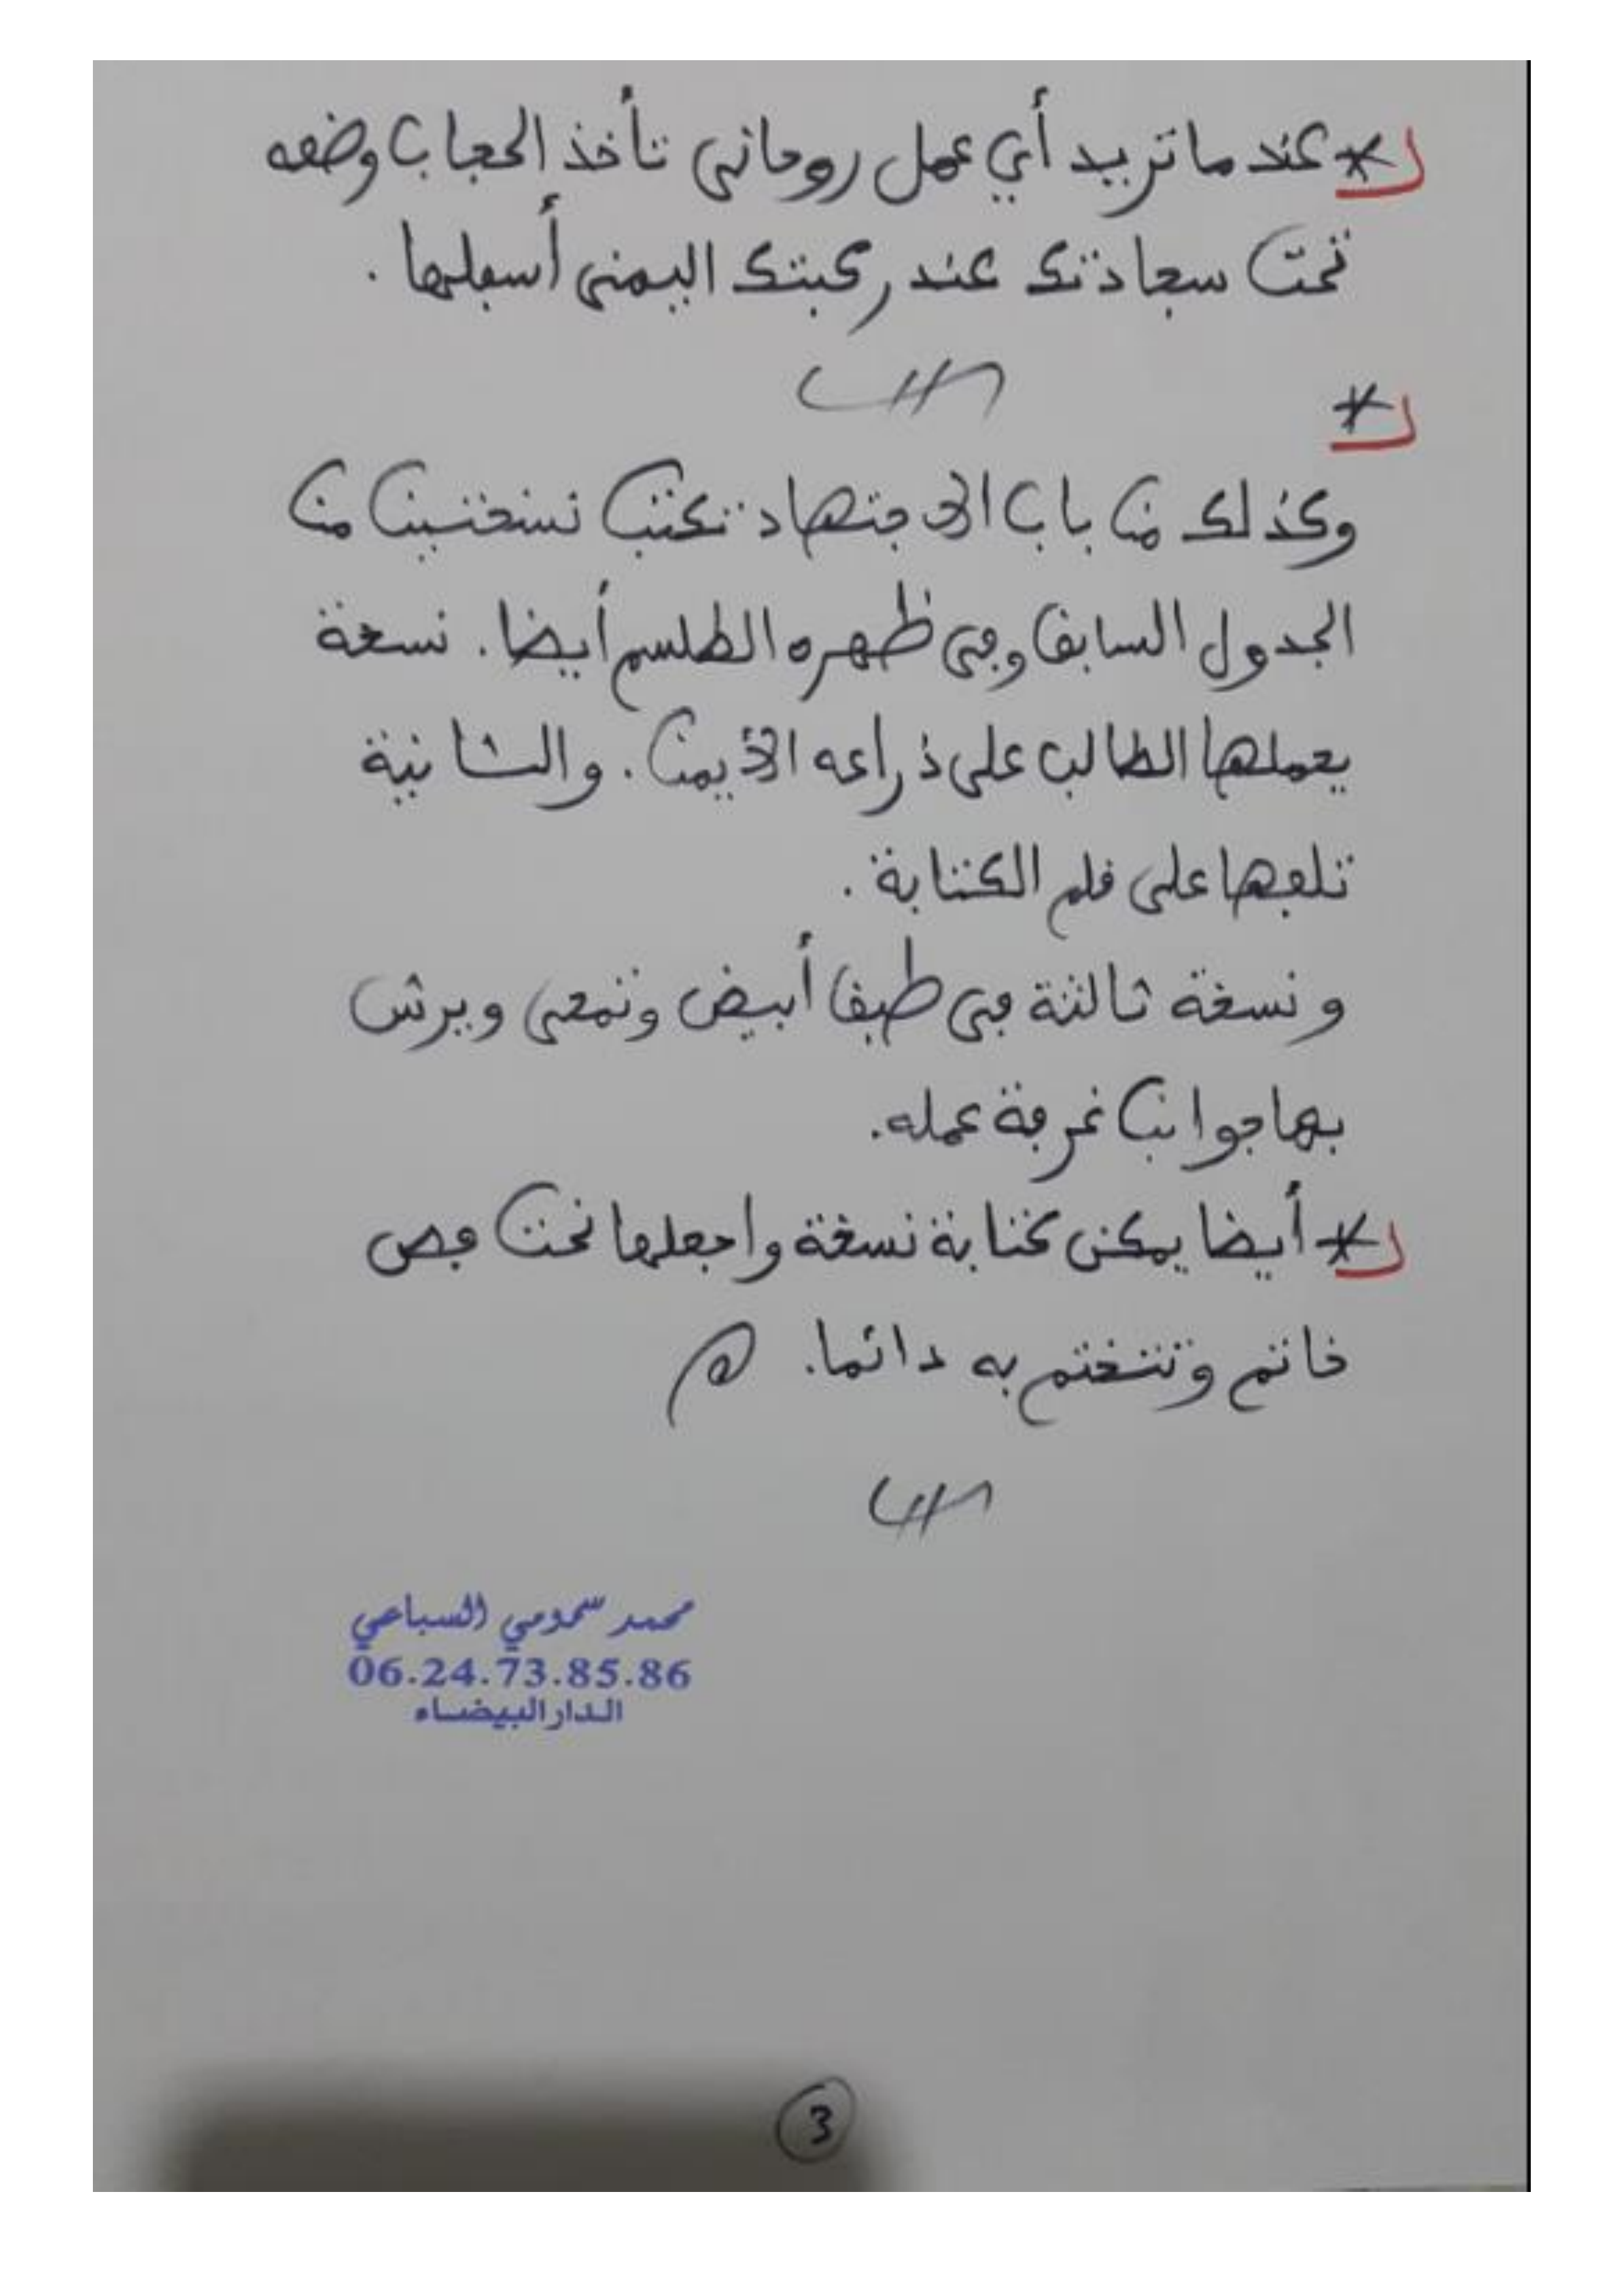 * عندما تريد أي عمل روحاني تأخذ الحجاب وضعه
تحت سجادتك عند ركبتك اليمنى أسفلها.
*
وكذلك من باب الاجتهاد تكتب نسختين من
الجدول السابق وفي ظهره الطلسم أيضا. نسخة
يعملها الطالب على ذراعه الأيمن. والثانية
تلفها على قلم الكتابة.
ونسخة ثالثة في طبق أبيض وتمحى ويرش
بها جوانب غرفة عمله.
* أيضا يمكن كتابة نسخة واجعلها تحت فص
خاتم وتتختم به دائما.
محمد سمومي السباعي
06.24.73.85.86
الدار البيضاء
3